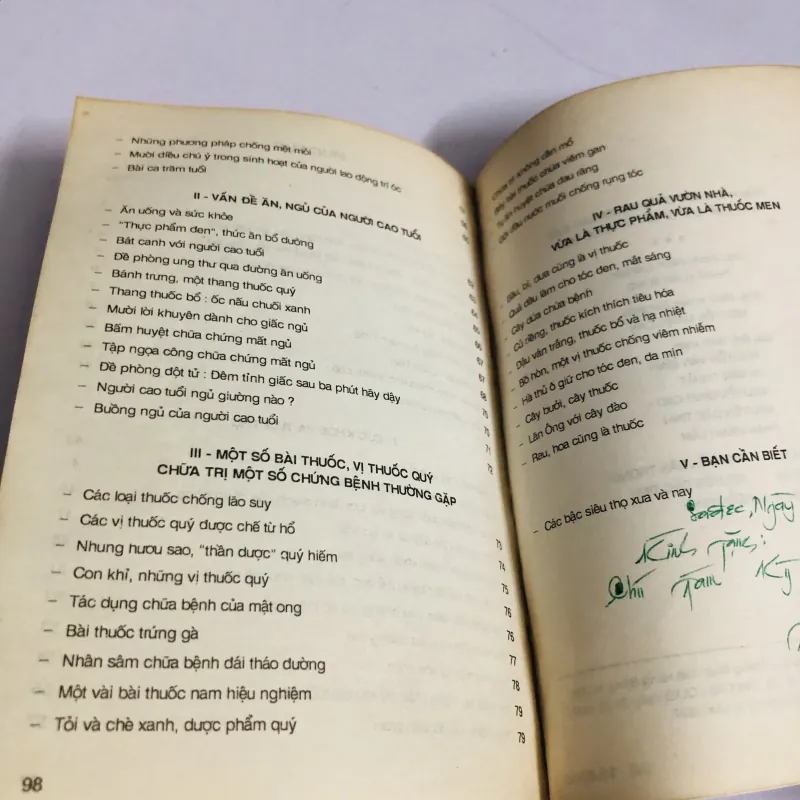 – Những phương pháp chống mệt mỏi
– Mười điều chú ý trong sinh hoạt của người lao động trí óc
– Bài ca trăm tuổi
II - VẤN ĐỀ ĂN, NGỦ CỦA NGƯỜI CAO TUỔI
– Ăn uống và sức khỏe
– "Thực phẩm đen", thức ăn bổ dưỡng
– Bát canh với người cao tuổi
– Đề phòng ung thư qua đường ăn uống
– Bánh trưng, một thang thuốc quý
– Thang thuốc bổ : ốc nấu chuối xanh
– Mười lời khuyên dành cho giấc ngủ
– Bấm huyệt chữa chứng mất ngủ
– Tập ngọa công chữa chứng mất ngủ
– Đề phòng đột tử : Đêm tỉnh giấc sau ba phút hãy dậy
– Người cao tuổi ngủ giường nào ?
– Buồng ngủ của người cao tuổi 72
III - MỘT SỐ BÀI THUỐC, VỊ THUỐC QUÝ
CHỮA TRỊ MỘT SỐ CHỨNG BỆNH THƯỜNG GẶP
– Các loại thuốc chống lão suy 73
– Các vị thuốc quý được chế từ hổ 74
– Nhung hươu sao, "thần dược" quý hiếm 75
– Con khỉ, những vị thuốc quý 76
– Tác dụng chữa bệnh của mật ong 76
– Bài thuốc trứng gà 77
– Nhân sâm chữa bệnh đái tháo đường 78
– Một vài bài thuốc nam hiệu nghiệm 79
– Tỏi và chè xanh, dược phẩm quý 79
98
Chữa trĩ không cần mổ
Bảy bài thuốc chữa viêm gan
Tự ấn huyệt chữa đau răng
Gội đầu nước muối chống rụng tóc
IV - RAU QUẢ VƯỜN NHÀ,
VỪA LÀ THỰC PHẨM, VỪA LÀ THUỐC MEN
– Bầu, bí, dưa cũng là vị thuốc
– Quả dâu làm cho tóc đen, mắt sáng
– Cây dừa chữa bệnh
– Củ riềng, thuốc kích thích tiêu hóa
– Đậu ván trắng, thuốc bổ và hạ nhiệt
– Bồ hòn, một vị thuốc chống viêm nhiễm
– Hà thủ ô giữ cho tóc đen, da mịn
– Cây bưởi, cây thuốc
– Lãn Ông với cây đào
– Rau, hoa cũng là thuốc
V - BẠN CẦN BIẾT
– Các bậc siêu thọ xưa và nay
Sadec, Ngày
Kính Tặng:
Chú Tam Kỳ